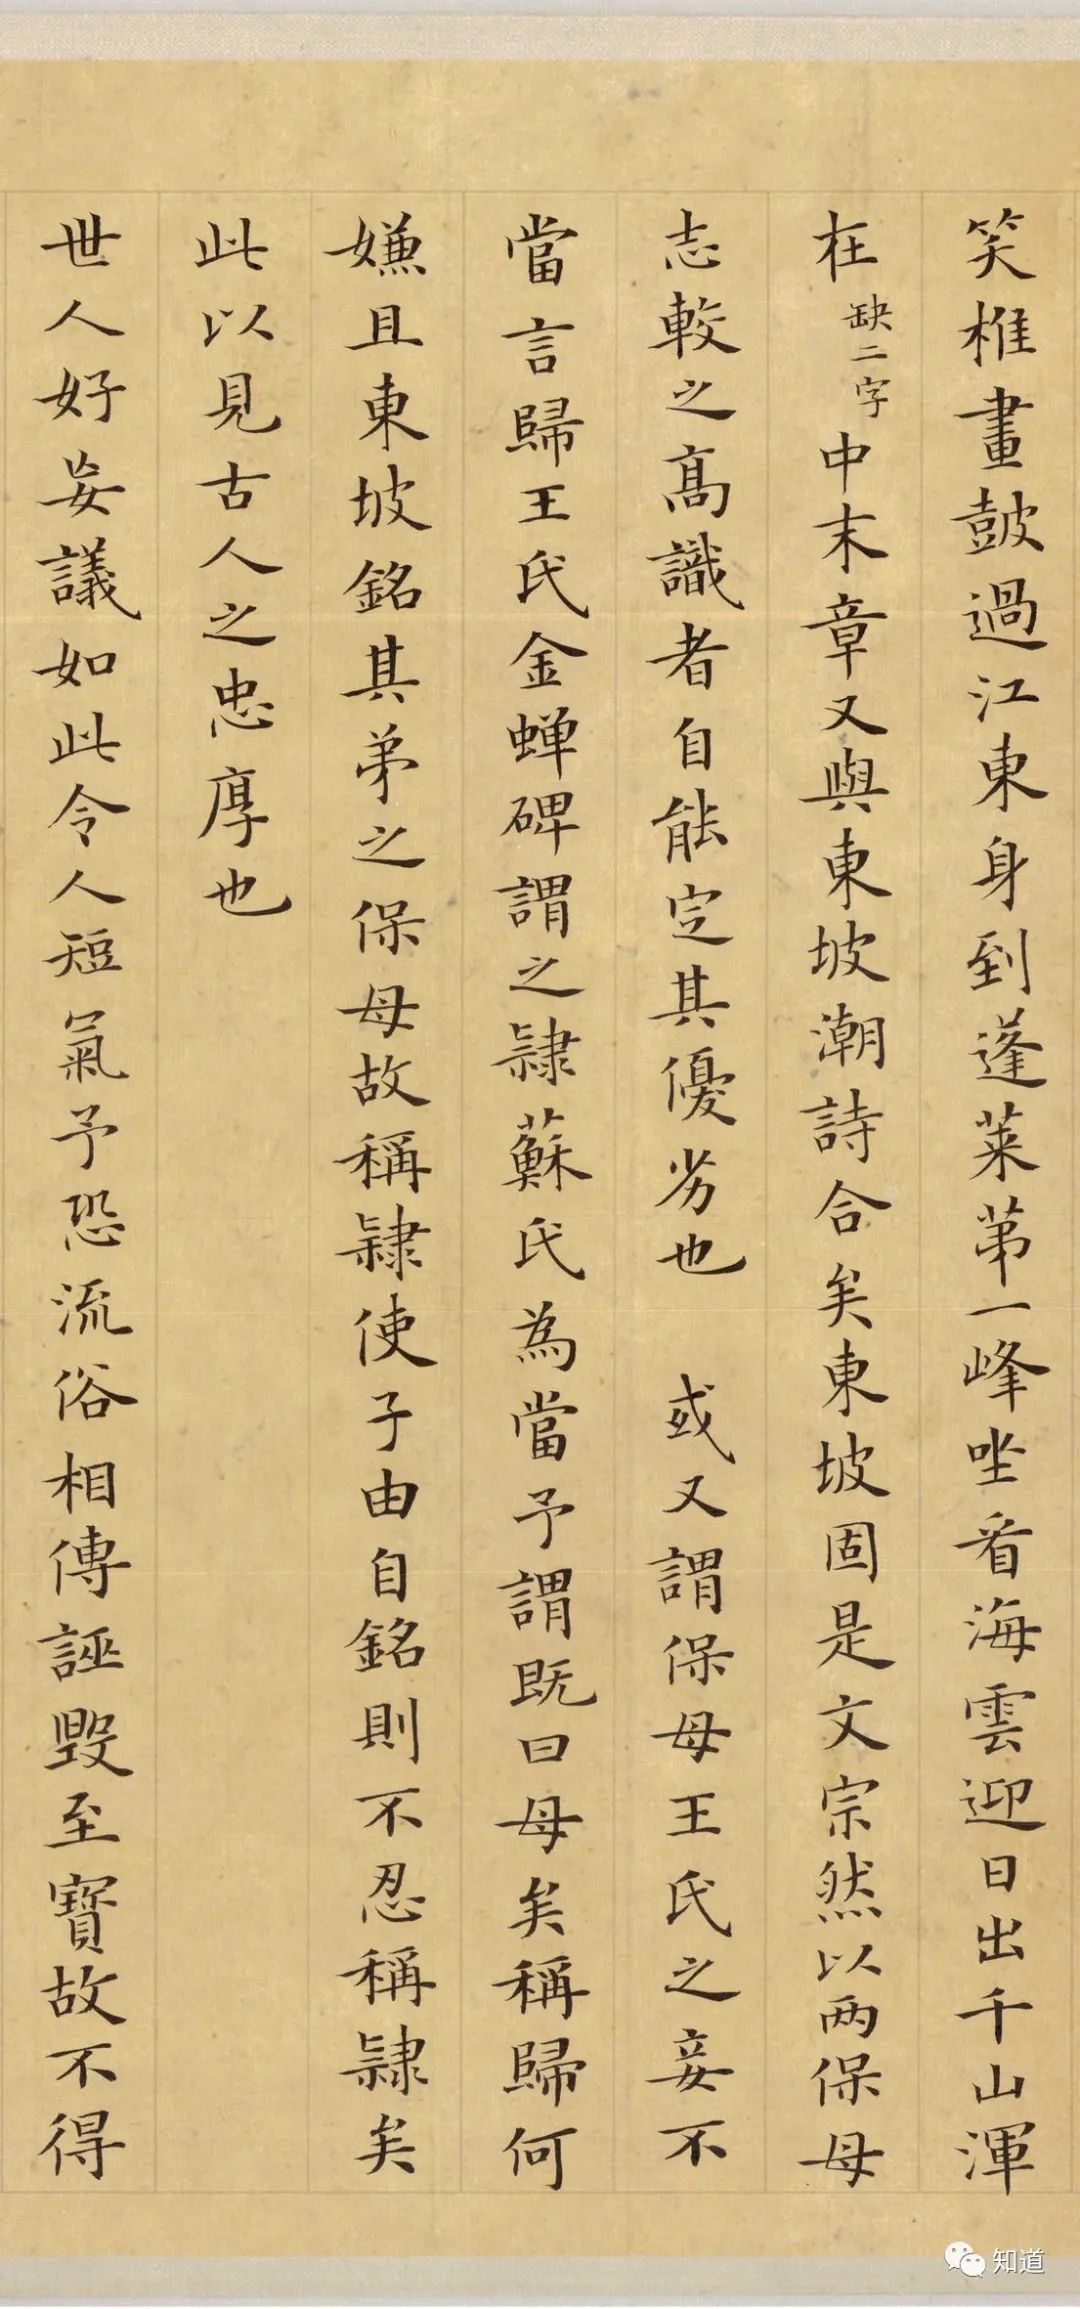 笑椎畫鼓過江東身到蓬萊第一峰坐看海雲迎日出千山渾
在缺二字中末章又與東坡潮詩合矣東坡固是文宗然以兩保母
志較之高識者自能定其優劣也 或又謂保母王氏之妾不
當言歸王氏金蟬碑謂之隸蘇氏為當予謂既曰母矣稱歸何
嫌且東坡銘其弟之保母故稱隸使子由自銘則不忍稱隸矣
此以見古人之忠厚也
世人好妄議如此令人短氣予恐流俗相傳誣毀至寶故不得
知道